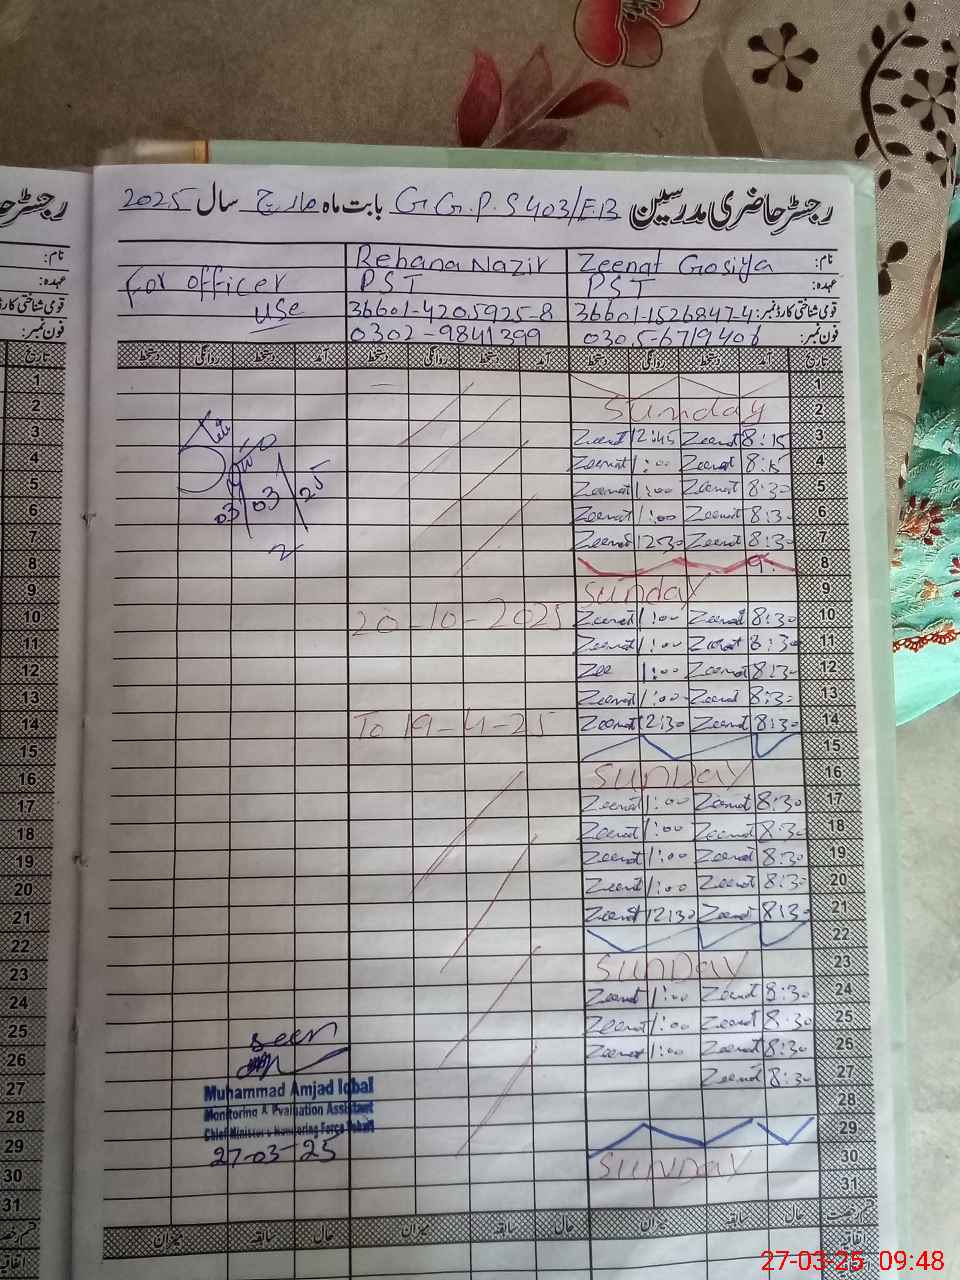 رجسٹر حاضری مدرسین G.G.P.S 403/E.B بابت ماہ مارچ سال 2025
نام: Zeenat Gosiya Rehana Nazir
عہدہ: PST PST For officer
قومی شناختی کارڈ نمبر: 36601-1526847-4 36601-4205925-8 use
فون نمبر: 0305-6719406 0302-9841399
تاریخ آمد دستخط روانگی دستخط آمد دستخط روانگی دستخط آمد دستخط روانگی دستخط
1
2 Sunday
3 8:15 Zeenat 12:45 Zeenat
4 8:15 Zeenat 1:00 Zeenat
5 8:30 Zeenat 1:00 Zeenat
6 8:30 Zeenat 1:00 Zeenat
7 8:30 Zeenat 12:30 Zeenat
03 03 25
8
9 Sunday
10 8:30 Zeenat 1:00 Zeenat 20-10-2025
11 8:30 Zeenat 1:00 Zeenat
12 8:30 Zeenat 1:00 Zee
13 8:30 Zeenat 1:00 Zeenat
14 8:30 Zeenat 12:30 Zeenat To 19-4-25
15
16 SUNDAY
17 8:30 Zeenat 1:00 Zeenat
18 8:30 Zeenat 1:00 Zeenat
19 8:30 Zeenat 1:00 Zeenat
20 8:30 Zeenat 1:00 Zeenat
21 8:30 Zeenat 12:30 Zeenat
22
23 SUNDAY
24 8:30 Zeenat 1:00 Zeenat
25 8:30 Zeenat 1:00 Zeenat
26 8:30 Zeenat 1:00 Zeenat
27 8:30 Zeenat
28
29
30 SUNDAY
31
seen
Muhammad Amjad Iqbal
Monitoring & Evaluation Assistant
Chief Minister's Monitoring Force
27-03-25
حال سابقہ میزان حال سابقہ میزان حال سابقہ میزان
اتفاقیہ
27-03-25 09:48